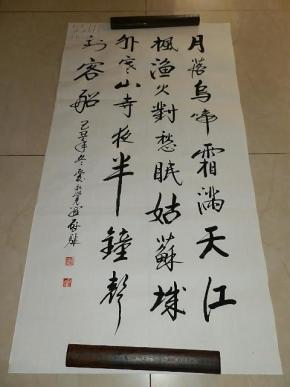 月落烏啼霜满天江
楓漁火對愁眠姑蘇城
外寒山寺夜半鐘聲
到客船